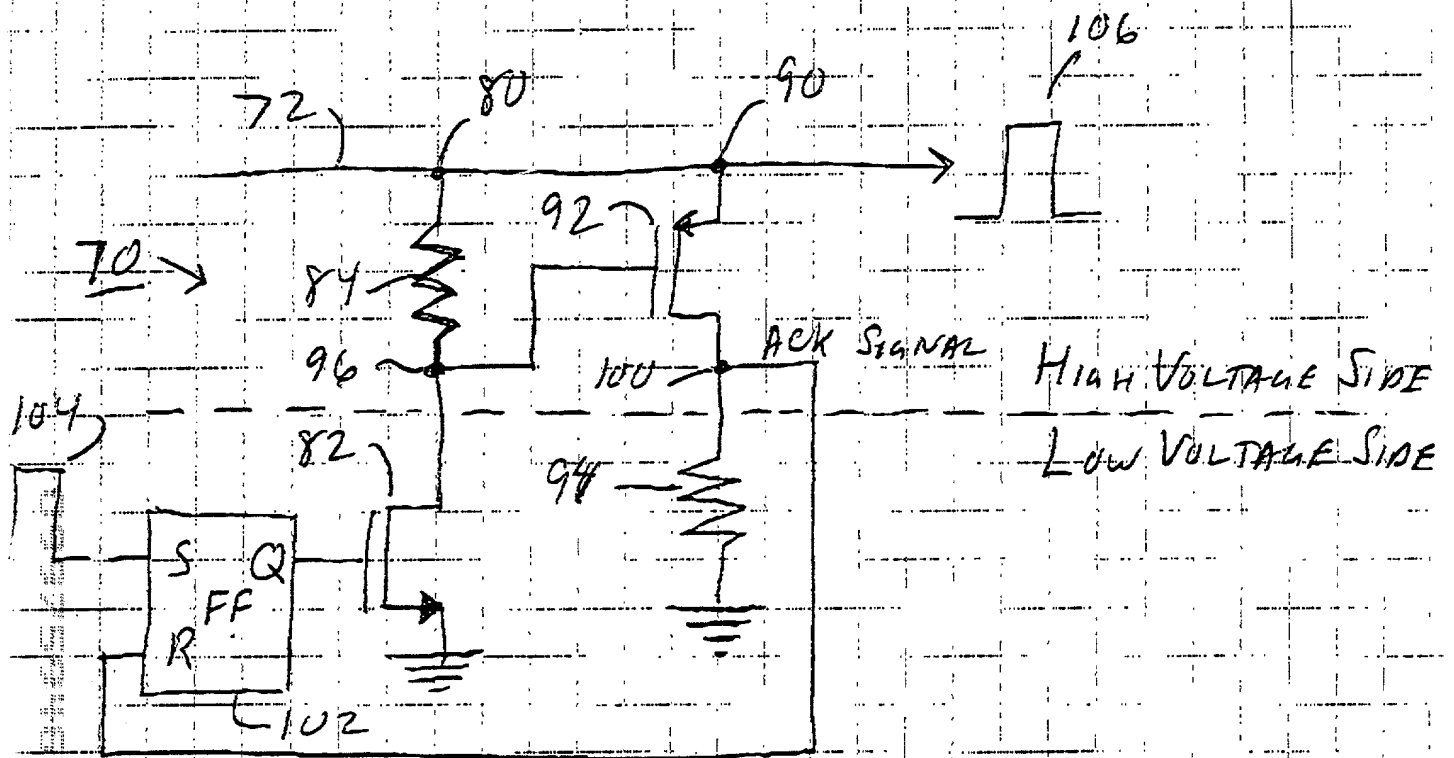 106
72
80
90
92
70
84
96
100
ACK SIGNAL
HIGH VOLTAGE SIDE
104
82
94
LOW VOLTAGE SIDE
S
Q
FF
R
102